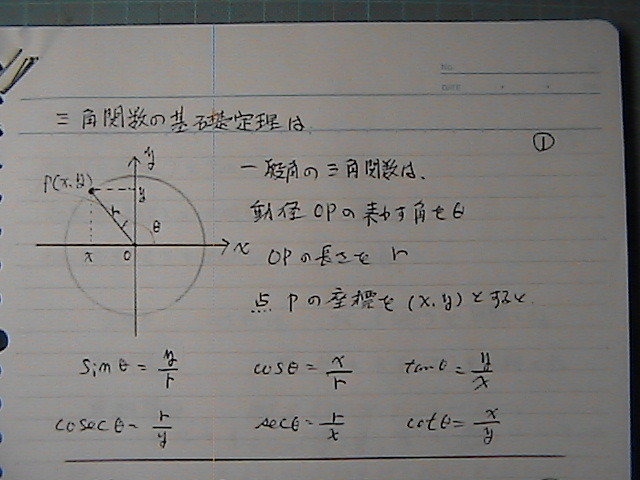 No.
Date
三角関数の基礎定理は、
①
y
P(x,y)
y
r
θ
x
0
x
一般角の三角関数は、
動径OPの表わす角をθ
OPの長さを r
点Pの座標を(x,y)とすると、
sinθ = y/r cosθ = x/r tanθ = y/x
cosecθ = r/y secθ = r/x cotθ = x/y